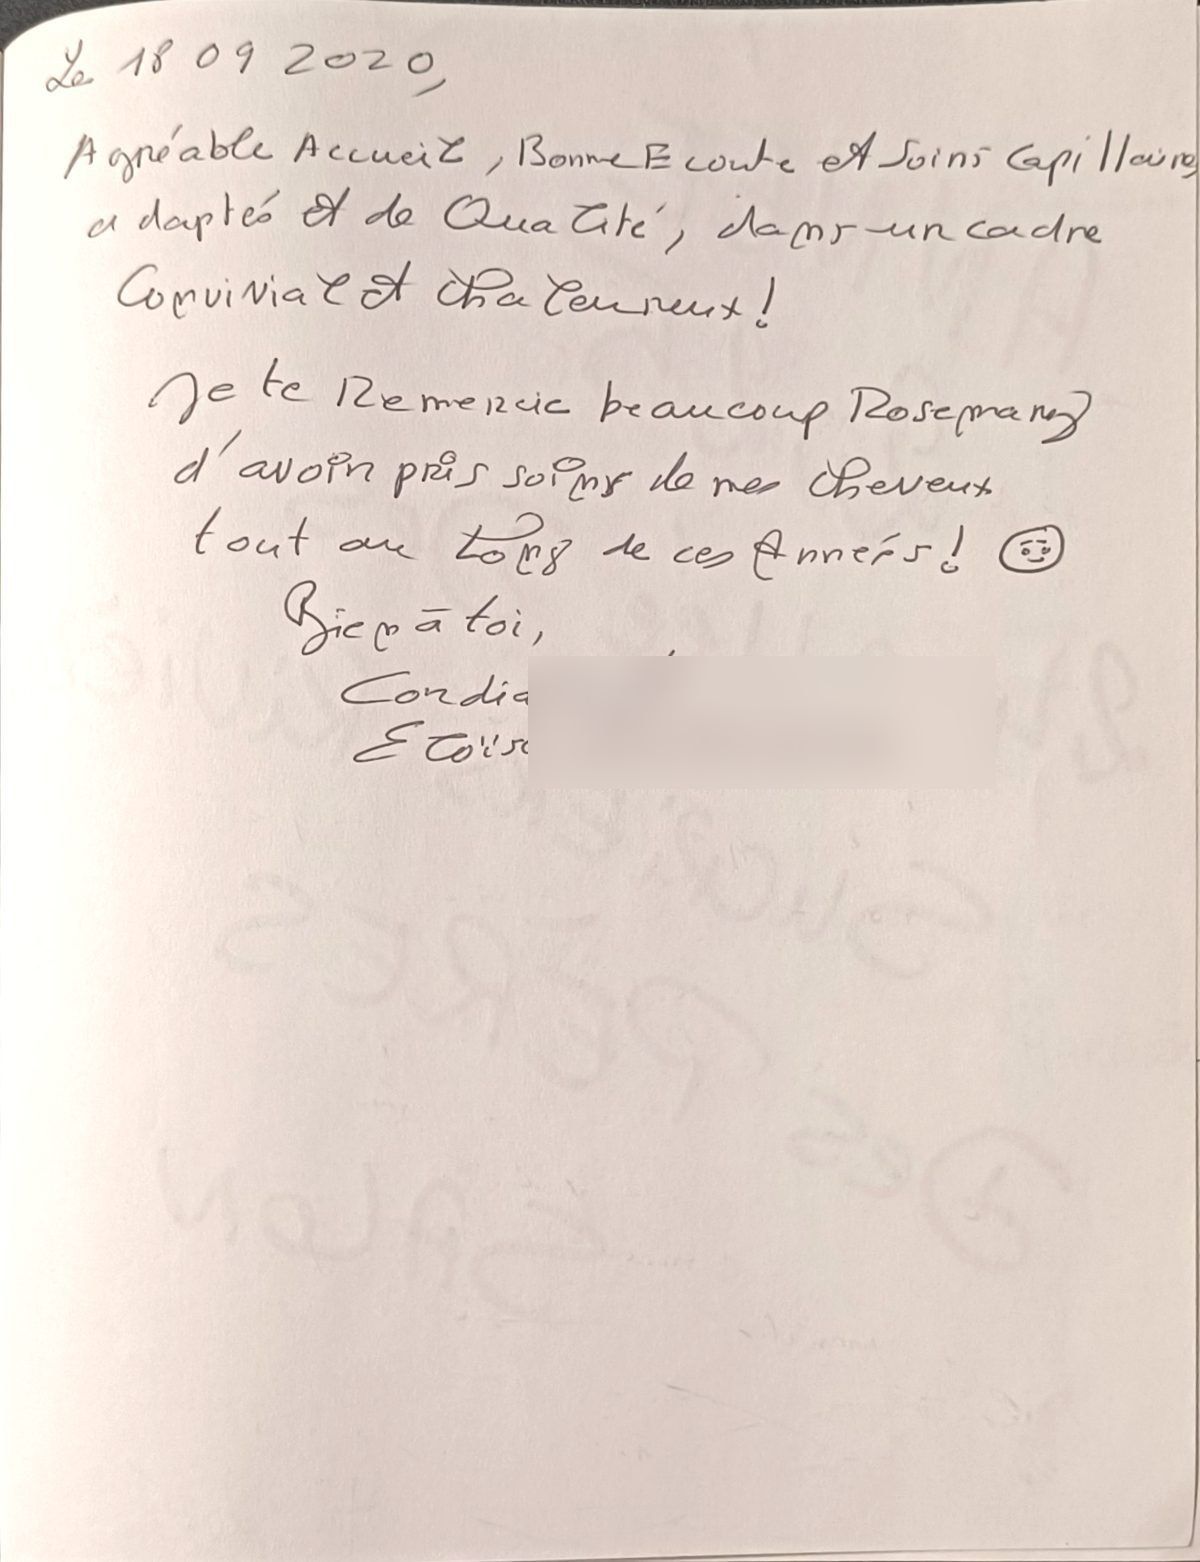 Le 18 09 2020,
Agréable Accueil, Bonne Ecoute et Soins Capillaires
adaptés et de Qualité, dans un cadre
Convivial et chaleureux!
Je te Remercie beaucoup Rosemary
d'avoir pris soins de mes cheveux
tout au long de ces Années! ☺
Bien à toi,
Cordia
Eloïs